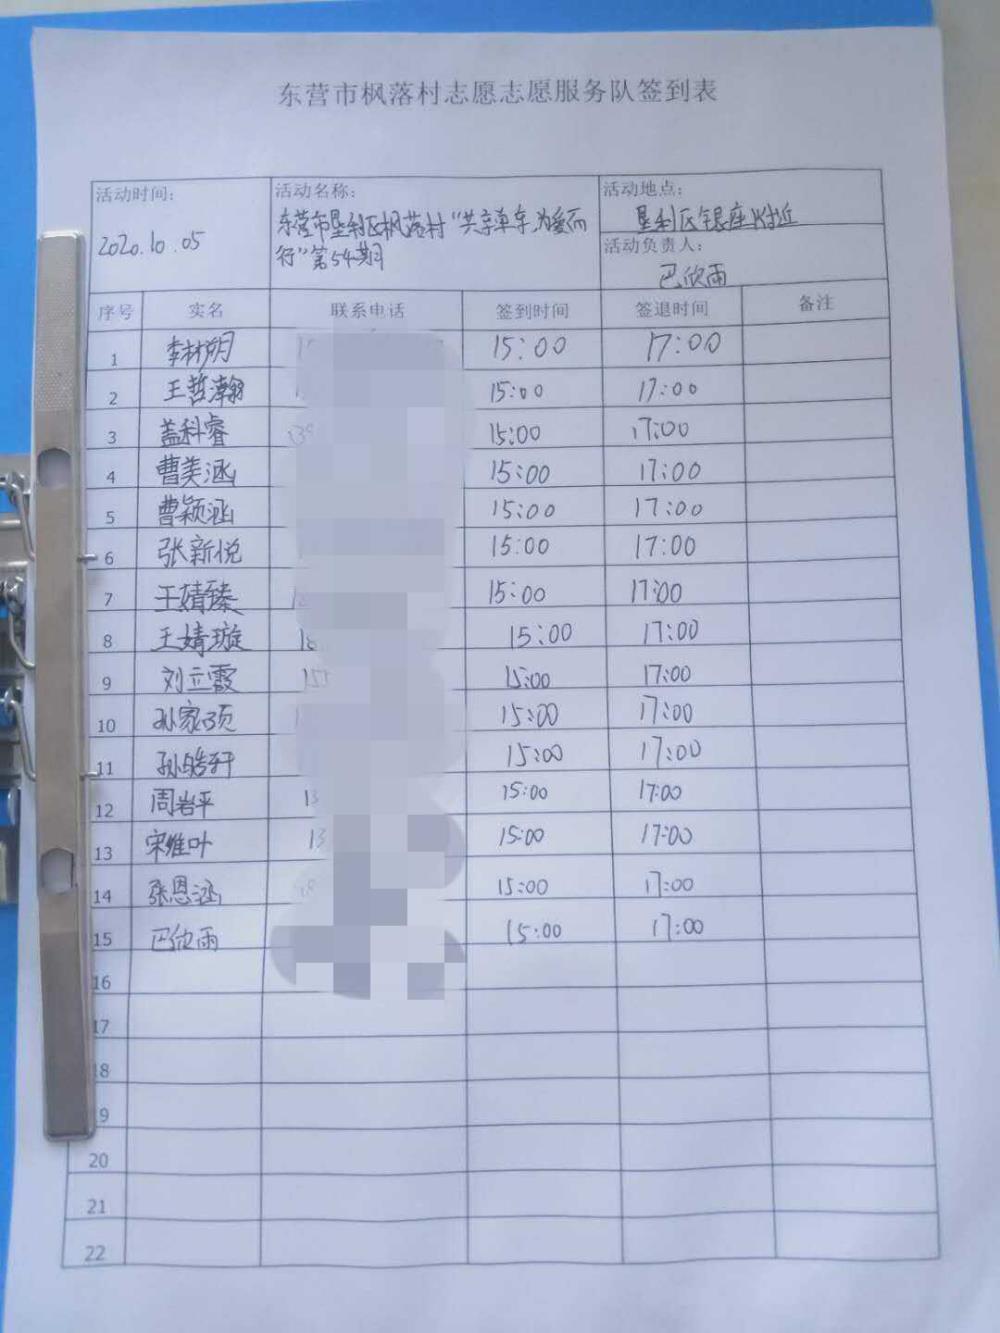 东营市枫落村志愿志愿服务队签到表
活动时间: 活动名称: 活动地点:
2020.10.05 东营市垦利区枫落村“共享单车,为爱而 垦利区银座附近
行”第54期 活动负责人:
巴欣雨
序号 实名 联系电话 签到时间 签退时间 备注
1 李林玥 15:00 17:00
2 王哲瀚 15:00 17:00
3 盖科睿 15:00 17:00
4 曹美涵 15:00 17:00
5 曹颖涵 15:00 17:00
6 张新悦 15:00 17:00
7 王婧臻 15:00 17:00
8 王婧璇 15:00 17:00
9 刘立霞 15:00 17:00
10 孙家 15:00 17:00
11 孙皓轩 15:00 17:00
12 周岩平 15:00 17:00
13 宋维叶 15:00 17:00
14 张恩涵 15:00 17:00
15 巴欣雨 15:00 17:00
16
17
18
19
20
21
22